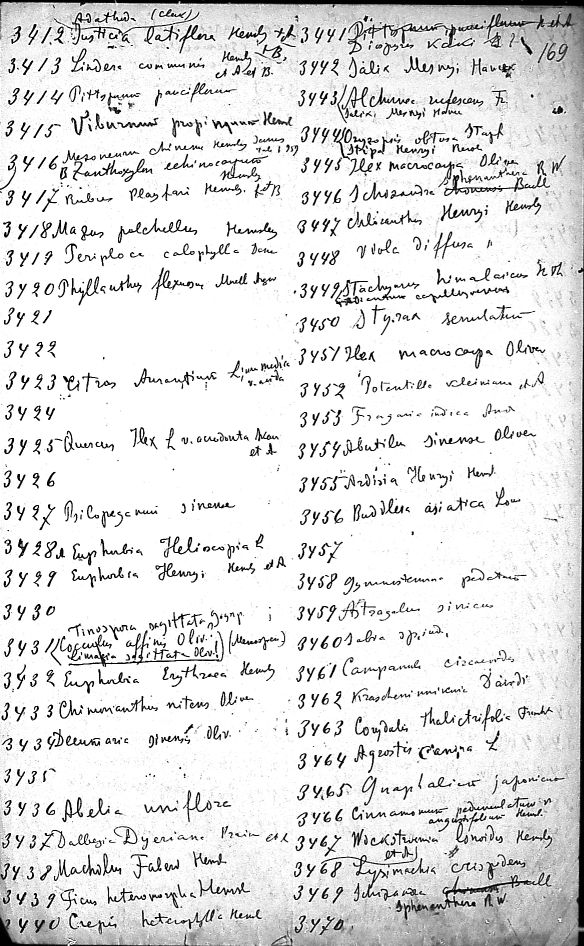 169
Adathoda (Clux)
3412 Justicia latiflora Hemsl
3413 Lindera communis Hemsl
et A et B.
3414 Pittosporum pauciflorum
3415 Viburnum propinquum Hemsl
3416 Mezoneuron chinense Hemsl
B Zanthoxylum echinocarpum
Hemsley
3417 Rubus Playfairi Hemsl. et B
3418 Mazus pulchellus Hemsley
3419 Periploca calophylla
3420 Phyllanthus flexuosus Muell
3421
3422
3423 Citrus Aurantium
3424
3425 Quercus Ilex L v.
et A
3426
3427 Psilopeganum sinense
3428 Euphorbia Helioscopia L
3429 Euphorbia Henryi Hemsl et A
3430
Tinospora sagittata
3431 Cocculus affinis Oliv. (Menosperm)
Limacia sagittata Oliv.
3432 Euphorbia Erythraea Hemsl
3433 Chimonanthus nitens Oliver
3434 Decumaria sinensis Oliv.
3435
3436 Abelia uniflora
3437 Dalbergia Dyeriana Prain et A
3438 Machilus Faberi Hemsl
3439 Ficus heteromorpha Hemsl
3440 Crepis heterophylla Hemsl
3441 Pittosporum pauciflorum
Diospyros Kaki
3442 Salix Mesnyi Hance
3443 Alchornea rufescens Fr
Salix Mesnyi Hance
3444 Oryzopsis obtusa Stapf
Stipa Henryi
3445 Ilex macrocarpa Oliver
Sphenanthera R W
3446 Schizandra chinensis Baill
3447 Chloranthus Henryi Hemsl
3448 Viola diffusa "
3449 Stachyurus himalaicus
Adiantum capillusveneris
3450 Styrax serrulatum
3451 Ilex macrocarpa Oliver
3452 Potentilla Kleiniana et A
3453 Fragaria indica And
3454 Abutilon sinense Oliver
3455 Ardisia Henryi Hemsl
3456 Buddleia asiatica Lour
3457
3458 Gymnostemma pedatum
3459 Astragalus sinicus
3460 Sabia
3461 Campanula
3462 Krascheninnikovia Davidi
3463 Corydalis thalictrifolia Franch
3464 Agrostis canina L
3465 Gnaphalium japonicum
3466 Cinnamomum pedunculatum
angustifolium Hemsl.
3467 Wikstroemia Hemsley
et A
3468 Lysimachia crispidens
3469 Schizandra chinensis Baill
Sphenanthera R W
3470